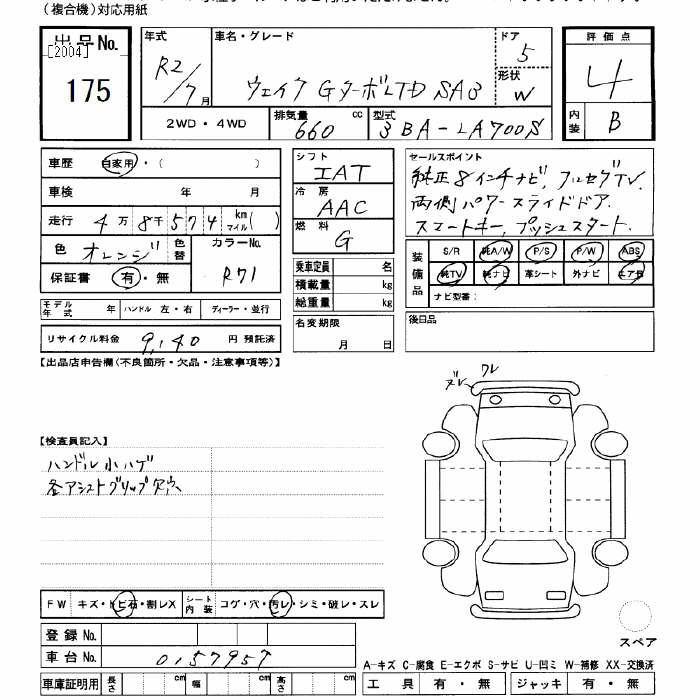 (複合機)対応用紙
出品No.
[2004]
175
年式
R2/7月
車名・グレード
ウェイク GターボLTD SAⅢ
ドア
5
形状
W
2WD・4WD
排気量
660 cc
型式
3BA-LA700S
評価点
4
内装
B
車歴 自家用・( )
車検 年 月
走行 4万8千574 km マイル( )
色 オレンジ 色替
カラーNo.
R71
保証書 有・無
モデル年式 年 ハンドル 左・右 ディーラー・並行
リサイクル料金 9,140 円 預託済
シフト
IAT
冷房
AAC
燃料
G
乗車定員 名
積載量 kg
総重量 kg
名変期限
月 日
セールスポイント
純正8インチナビ, フルセグTV.
両側パワースライドドア.
スマートキー, プッシュスタート.
装備品
S/R 純A/W P/S P/W ABS
純TV 純ナビ 革シート 外ナビ エア包
ナビ型番:
後日品
【出品店申告欄(不良箇所・欠品・注意事項等)】
【検査員記入】
ハンドル小ハゲ
各アシストグリップ穴
ワレ
ズレ
FW キズ・トビ石・割レX
シート内装 コゲ・穴・汚レ・シミ・破レ・スレ
登録No.
車台No. 0157957
車庫証明用 長さ cm 幅 cm 高さ cm
スペア
A-キズ C-腐食 E-エクボ S-サビ U-凹ミ W-補修 XX-交換済
工具 有・無 ジャッキ 有・無